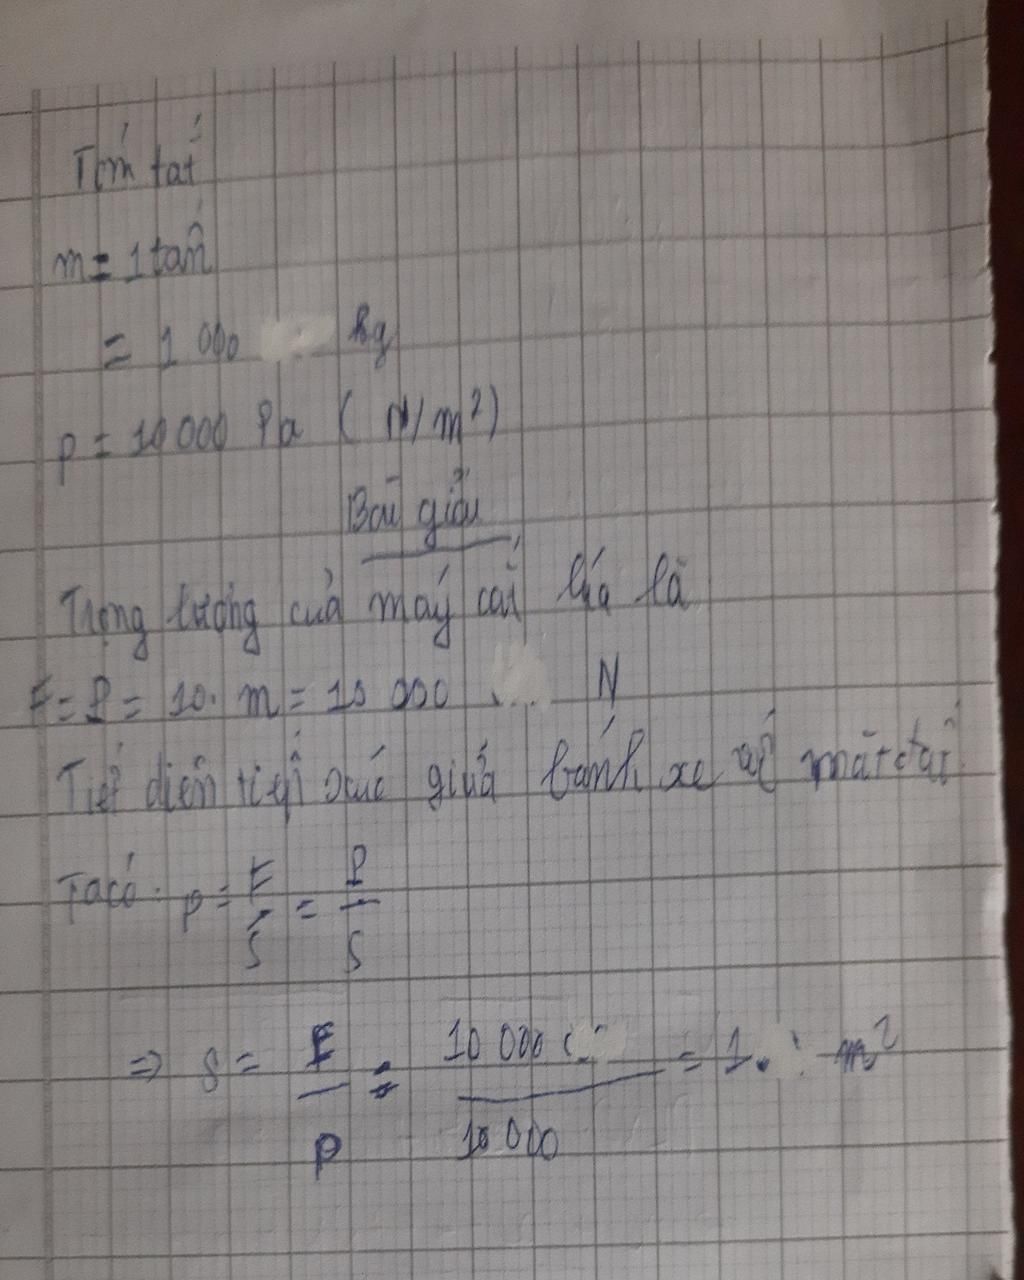 Tóm tắt
m = 1 tấn
= 1 000 kg
p = 10 000 Pa ( N/m²)
Bài giải
Trọng lượng của máy cắt lúa là
F = P = 10. m = 10 000 N
Tiết diện tiếp xúc giữa bánh xe với mặt đất
Ta có: p = F/S = P/S
=> S = F/p = 10 000/10 000 = 1. m²